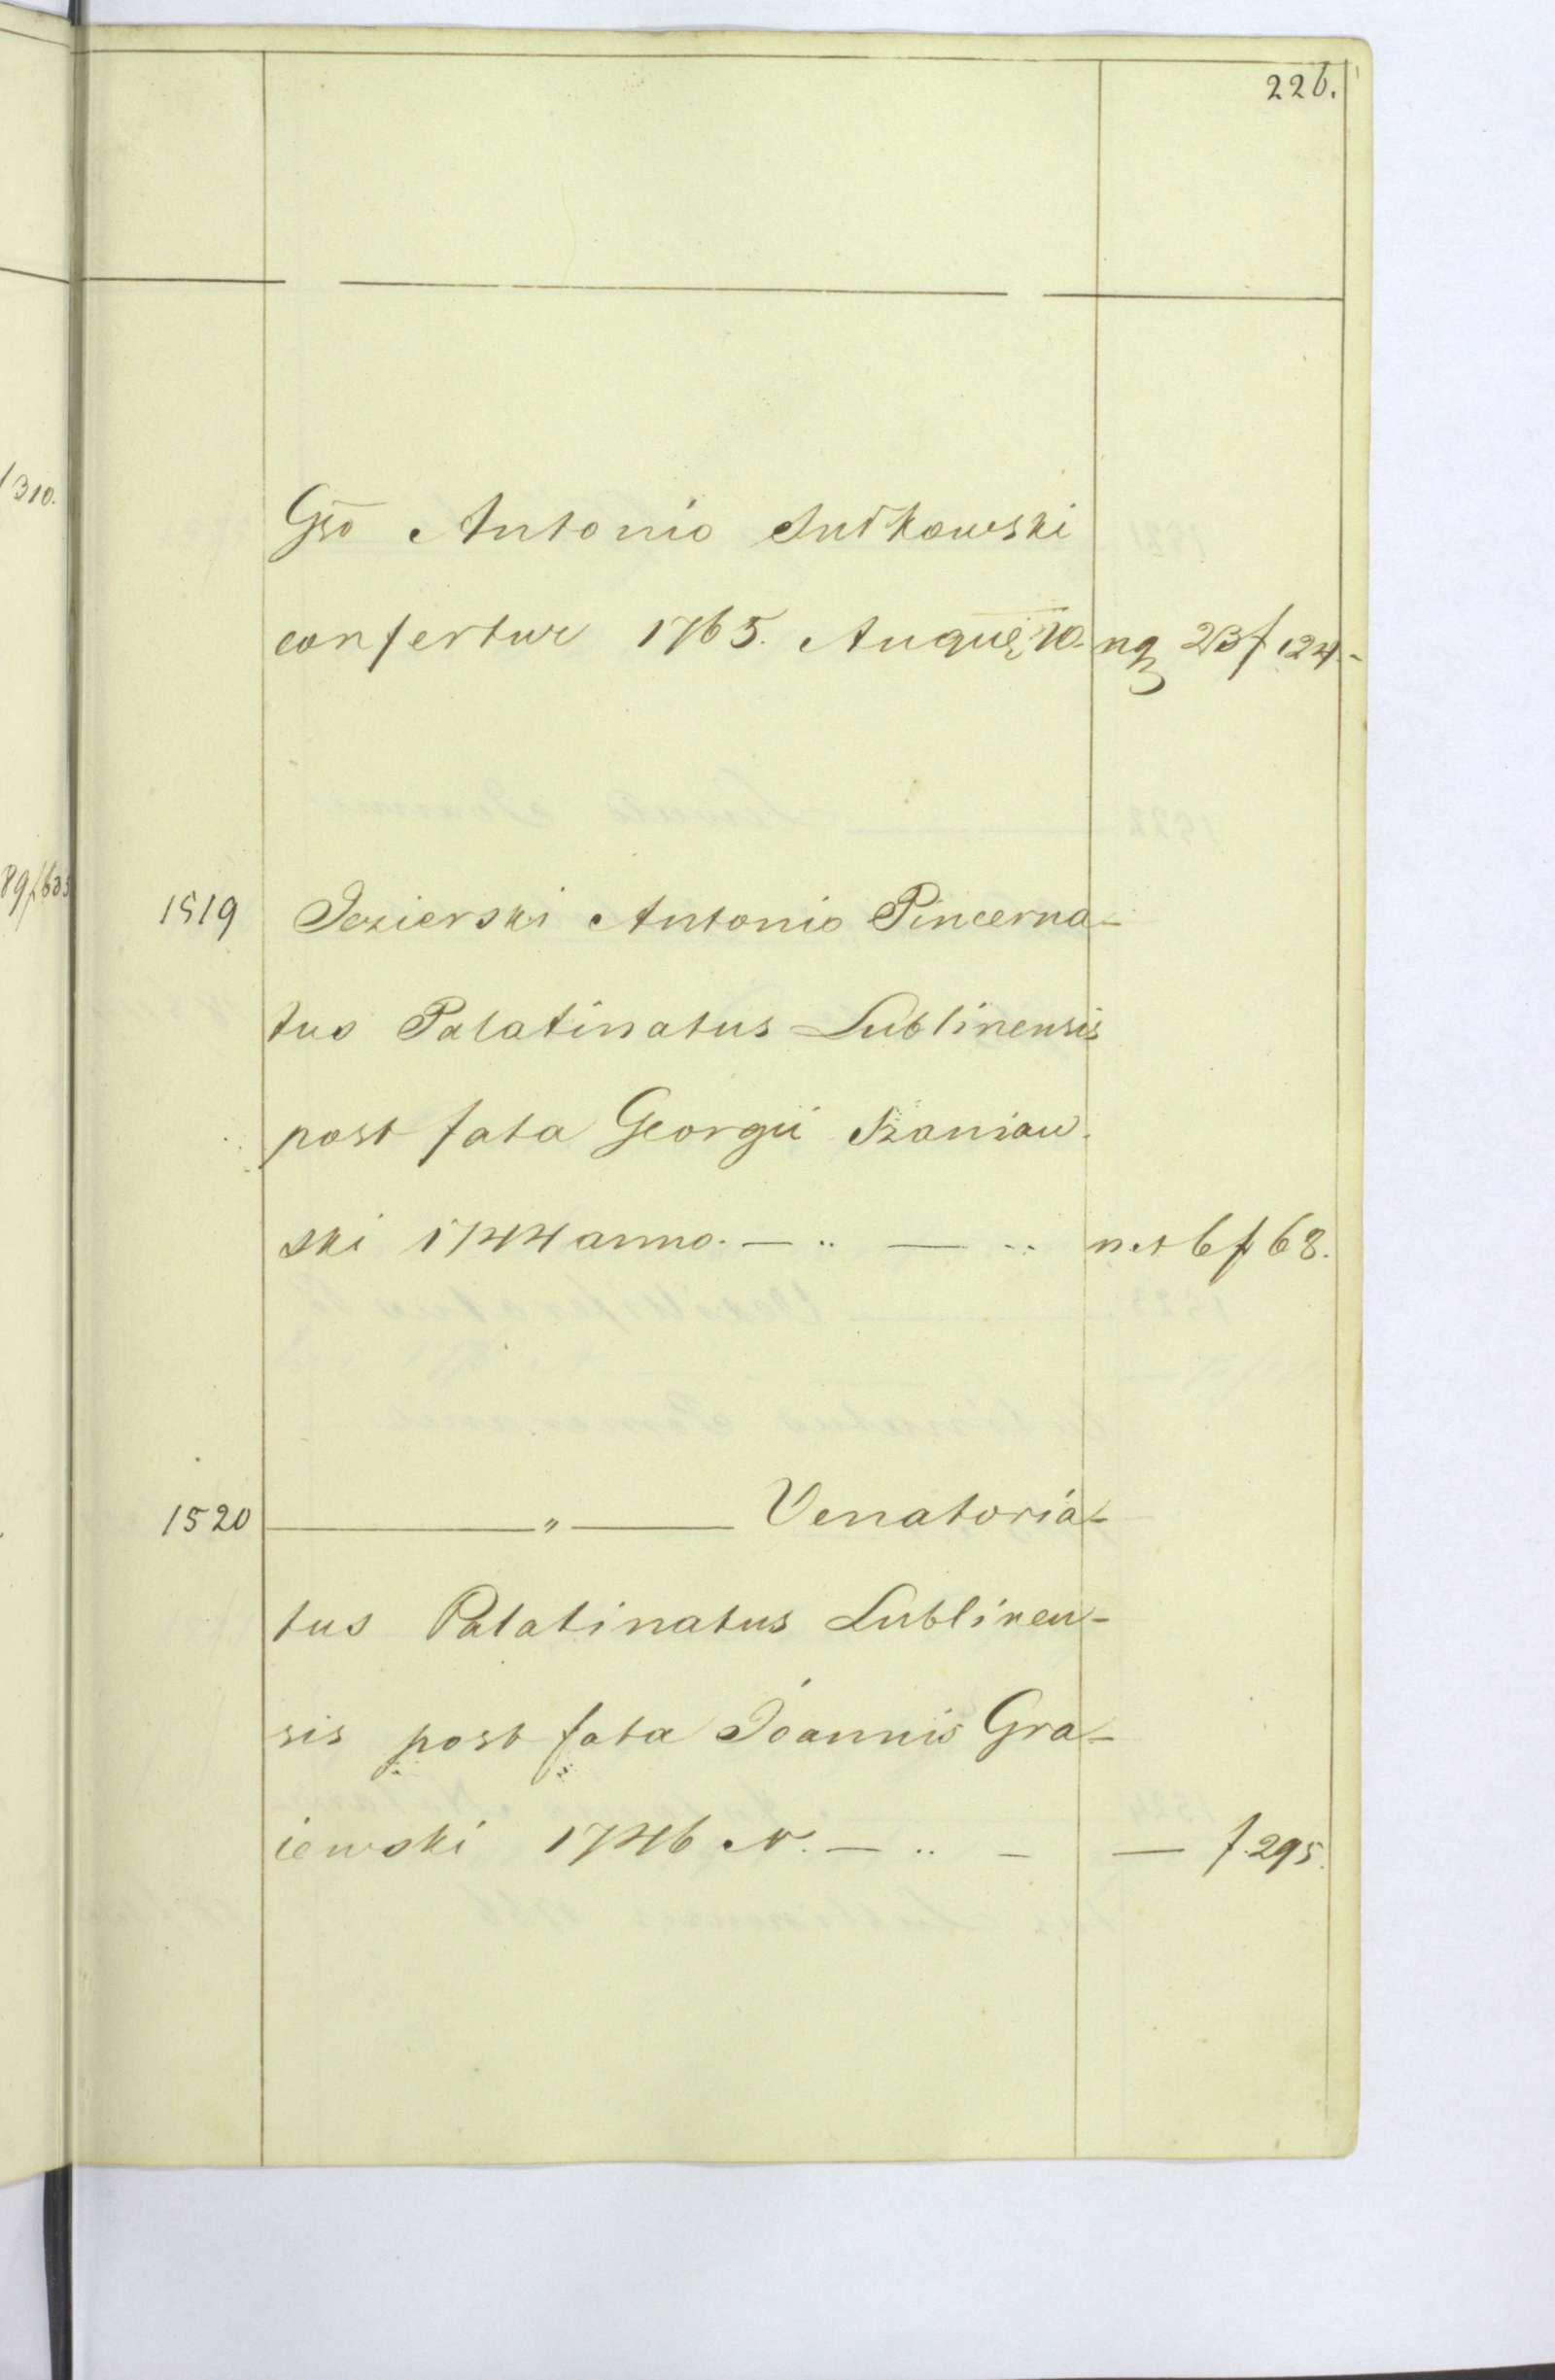 226.
310.
Gso Antonio Sutkowski
confertur 1765. 10. 23 f 124.-
1519 Jezierski Antonio Pincerna-
tus Palatinatus Lublinensis
post fata Georgii Szaniaw-
ski 1744 anno. — .. — .. 6 f 68.
1520 ———„——— Venatoria-
tus Palatinatus Lublinen-
sis post fata Joannis Gra-
iewski 1746 N. — .. — — f. 295.